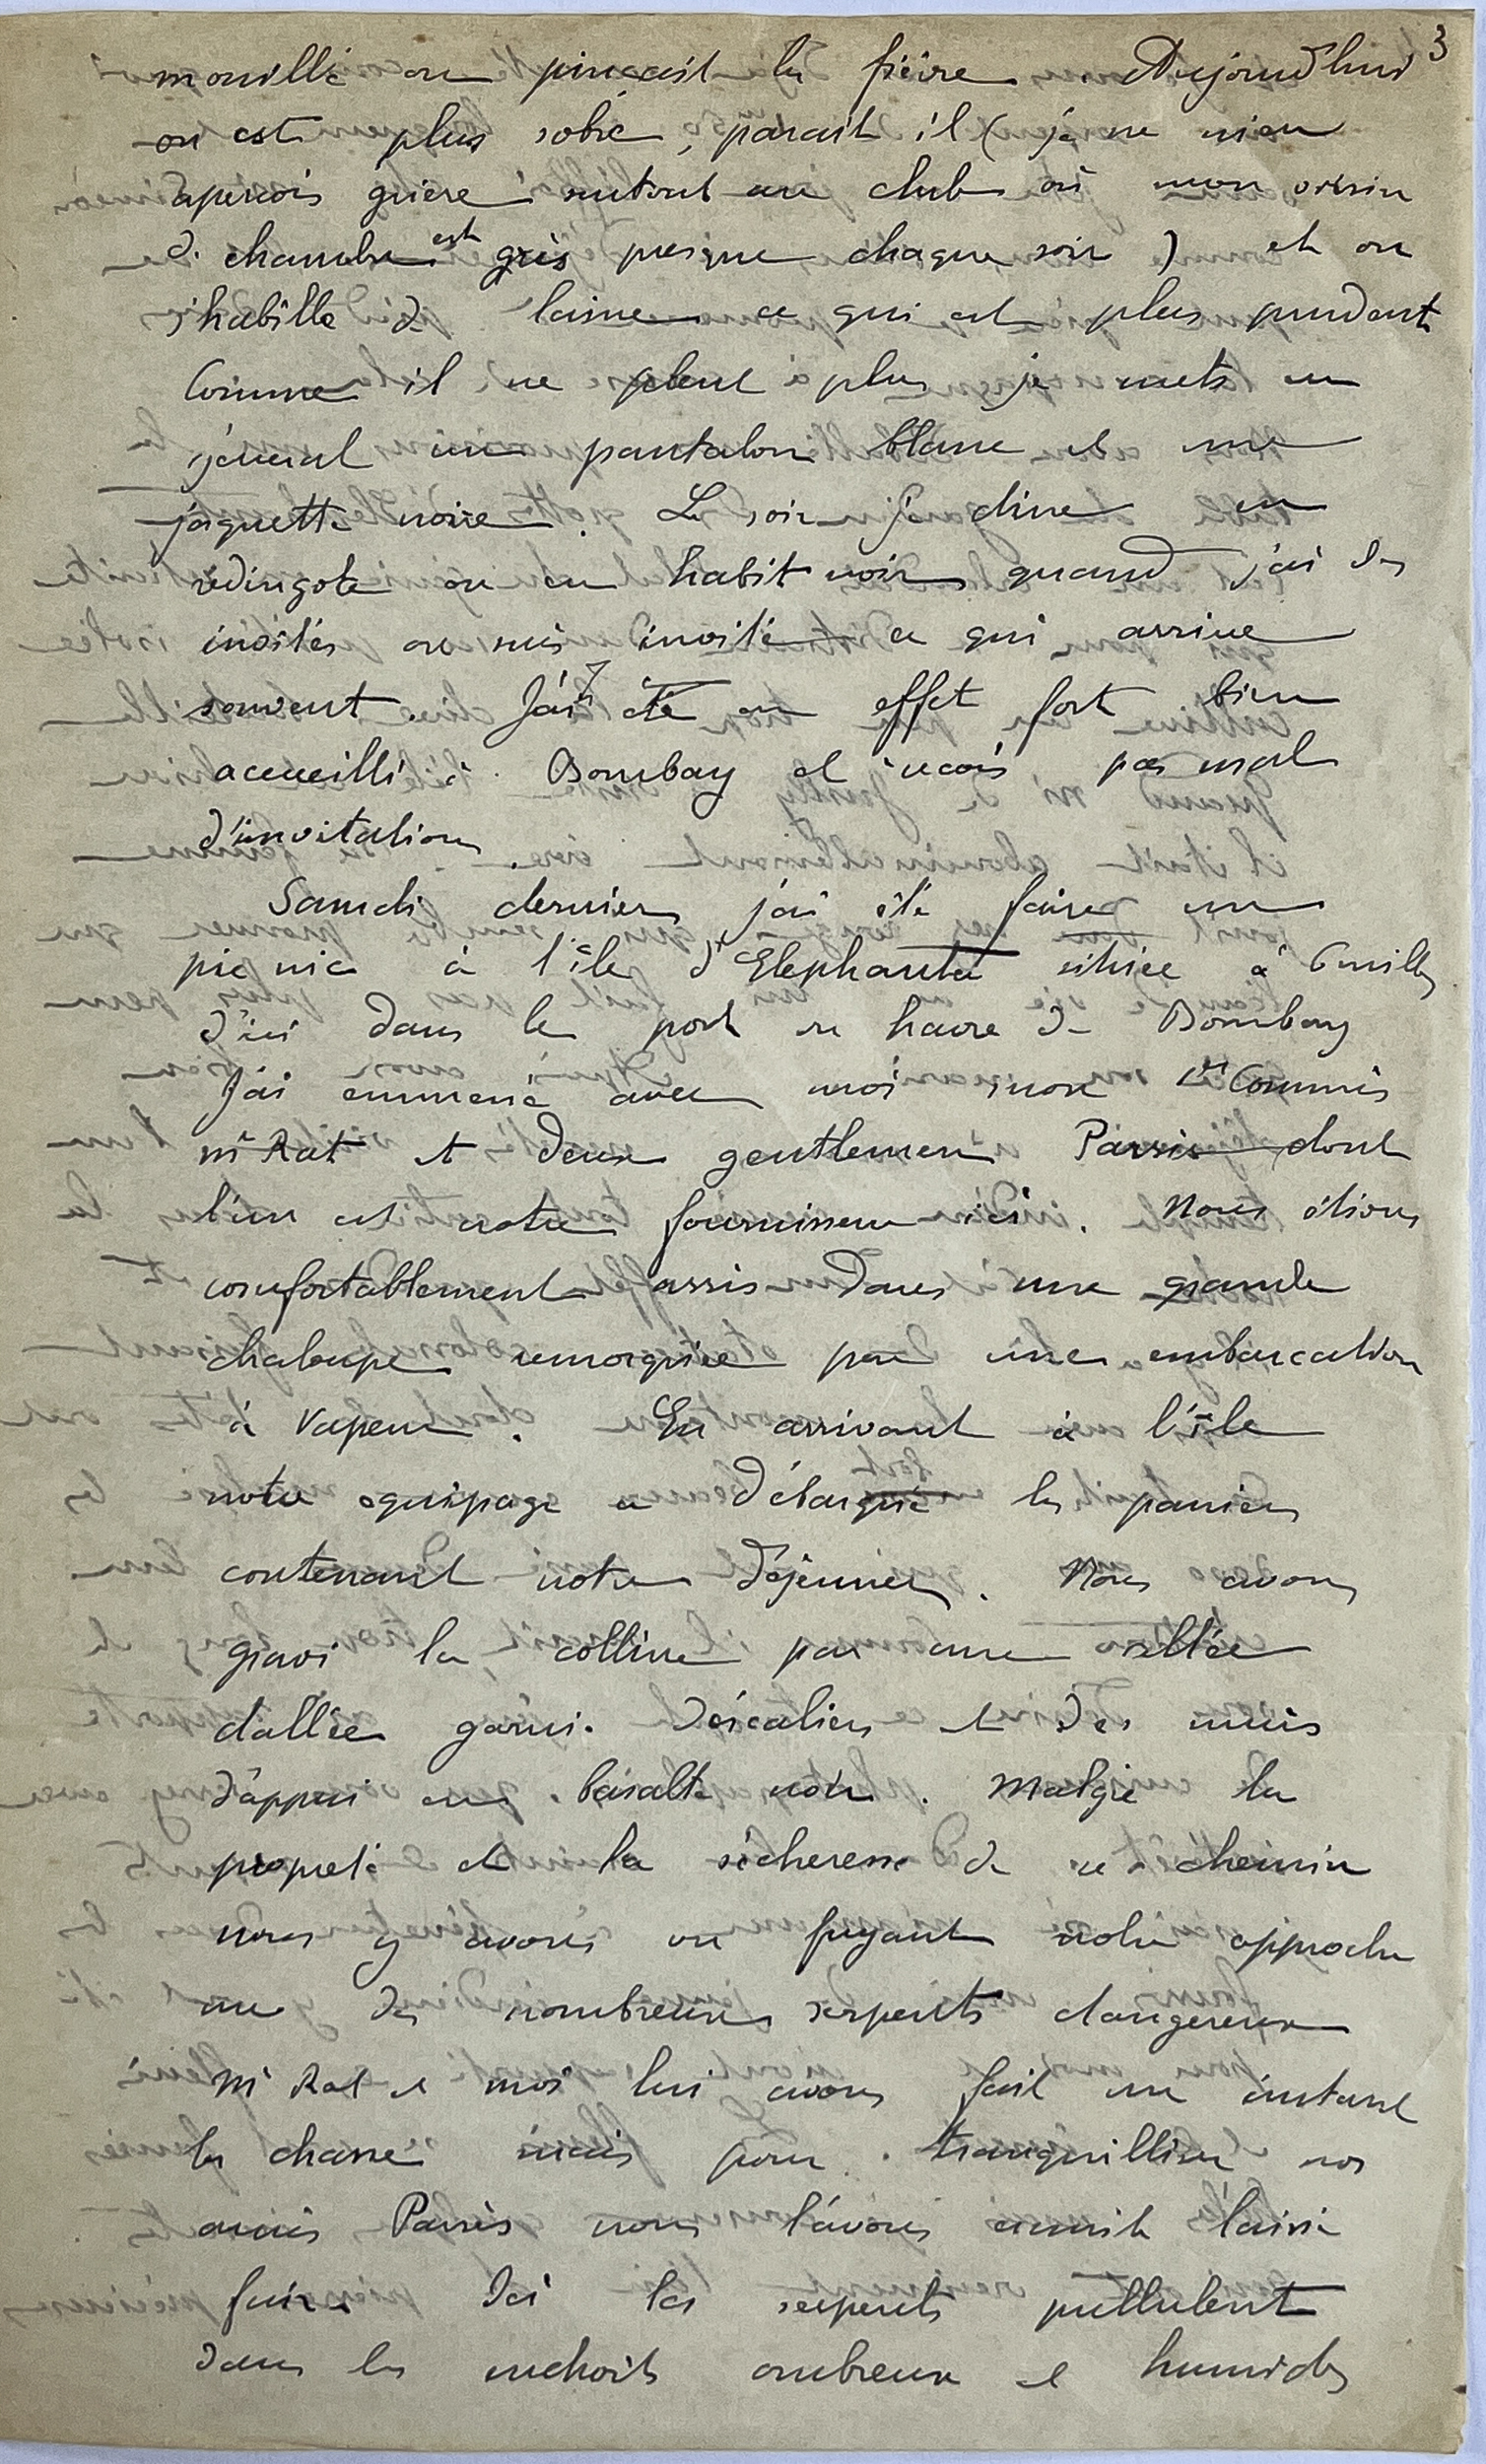 3
mouillé on pinçait la fièvre. Aujourd'hui
on est plus sobre, parait il (je ne m'en
aperçois guère surtout au club où mon voisin
de chambre est gris presque chaque soir) et on
s'habille de laine ce qui est plus prudent
Comme il ne pleut plus je mets en
général un pantalon blanc et une
jaquette noire. Le soir je dine en
redingote ou en habit noir quand j'ai des
invités ou suis invité ce qui arrive
souvent. J'ai été en effet fort bien
accueilli à Bombay et reçois pas mal
d'invitations.
Samedi dernier j'ai été faire un
pic nic à l'île d'Elephanta située à 6 milles
d'ici dans le port ou havre de Bombay
J'ai emmené avec moi mon 1er Commis
Mr Rat et deux gentlemen Parsis dont
l'un est notre fournisseur ici. Nous étions
confortablement assis dans une grande
chaloupe remorquée par une embarcation
à vapeur. En arrivant à l'île
notre équipage a débarqué les paniers
contenant notre déjeuner. Nous avons
gravi la colline par une allée
dallée garnie d'escaliers et des murs
d'appui en basalte noir. Malgré la
propreté et la sécheresse de ce chemin
nous y avons vu fuyant notre approche
un des nombreux serpents dangereux
Mr Rat et moi lui avons fait un instant
la chasse mais pour tranquilliser nos
amis Parsis nous l'avons ensuite laissé
fuir. Ici les serpents pullulent
dans les endroits ombreux et humides